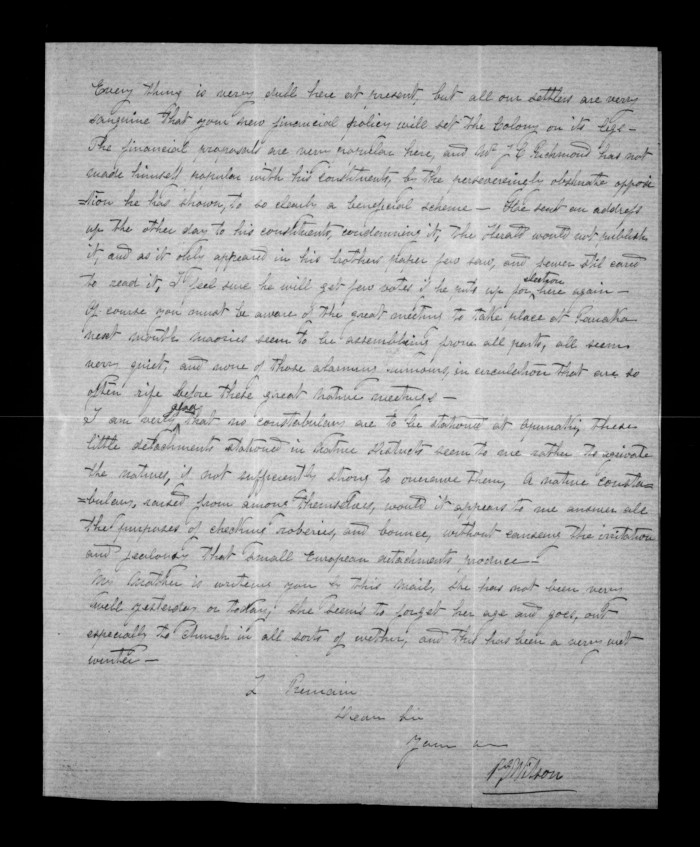 Every thing is very dull here at present, but all our settlers are very
sanguine that your new financial policy will set the Colony on its legs –
The financial proposals are very popular here, and Mr J C Richmond has not
made himself popular with his constituents, by the perseveringly obstinate opposi
=tion he has shown, to so clearly a beneficial scheme – He sent an address
up the other day to his constituents, condemning it, the Herald would not publish
it, and as it only appeared in his brothers paper few saw, and fewer stil cared
to read it, I feel sure he will get few votes if he puts up for election here again –
Of course you must be aware of the great meeting to take place at
next month maories seem to be assembling from all parts, all seem
very quiet, and none of those alarming rumours, in circulation that are so
often rife before these great native meetings –
I am very glad that no constabulary are to be stationed at Opunaki, these
little detachments stationed in native districts seem to me rather to
the natives, if not sufficiently strong to overawe them, A native consta=
=bulary, raised from among themselves, would it appears to me answer all
the purposes of checking roberies, and bounce, without causing the iritation
and jealousy that small European detachments, produce –
My Mother is writing you by this mail, she has not been very
well yesterday or today; She seems to forget her age and goes, out
especially to Church in all sorts of wether, and this has been a very wet
winter –
I Remain
Dear Sir
Yours
P G Wilson